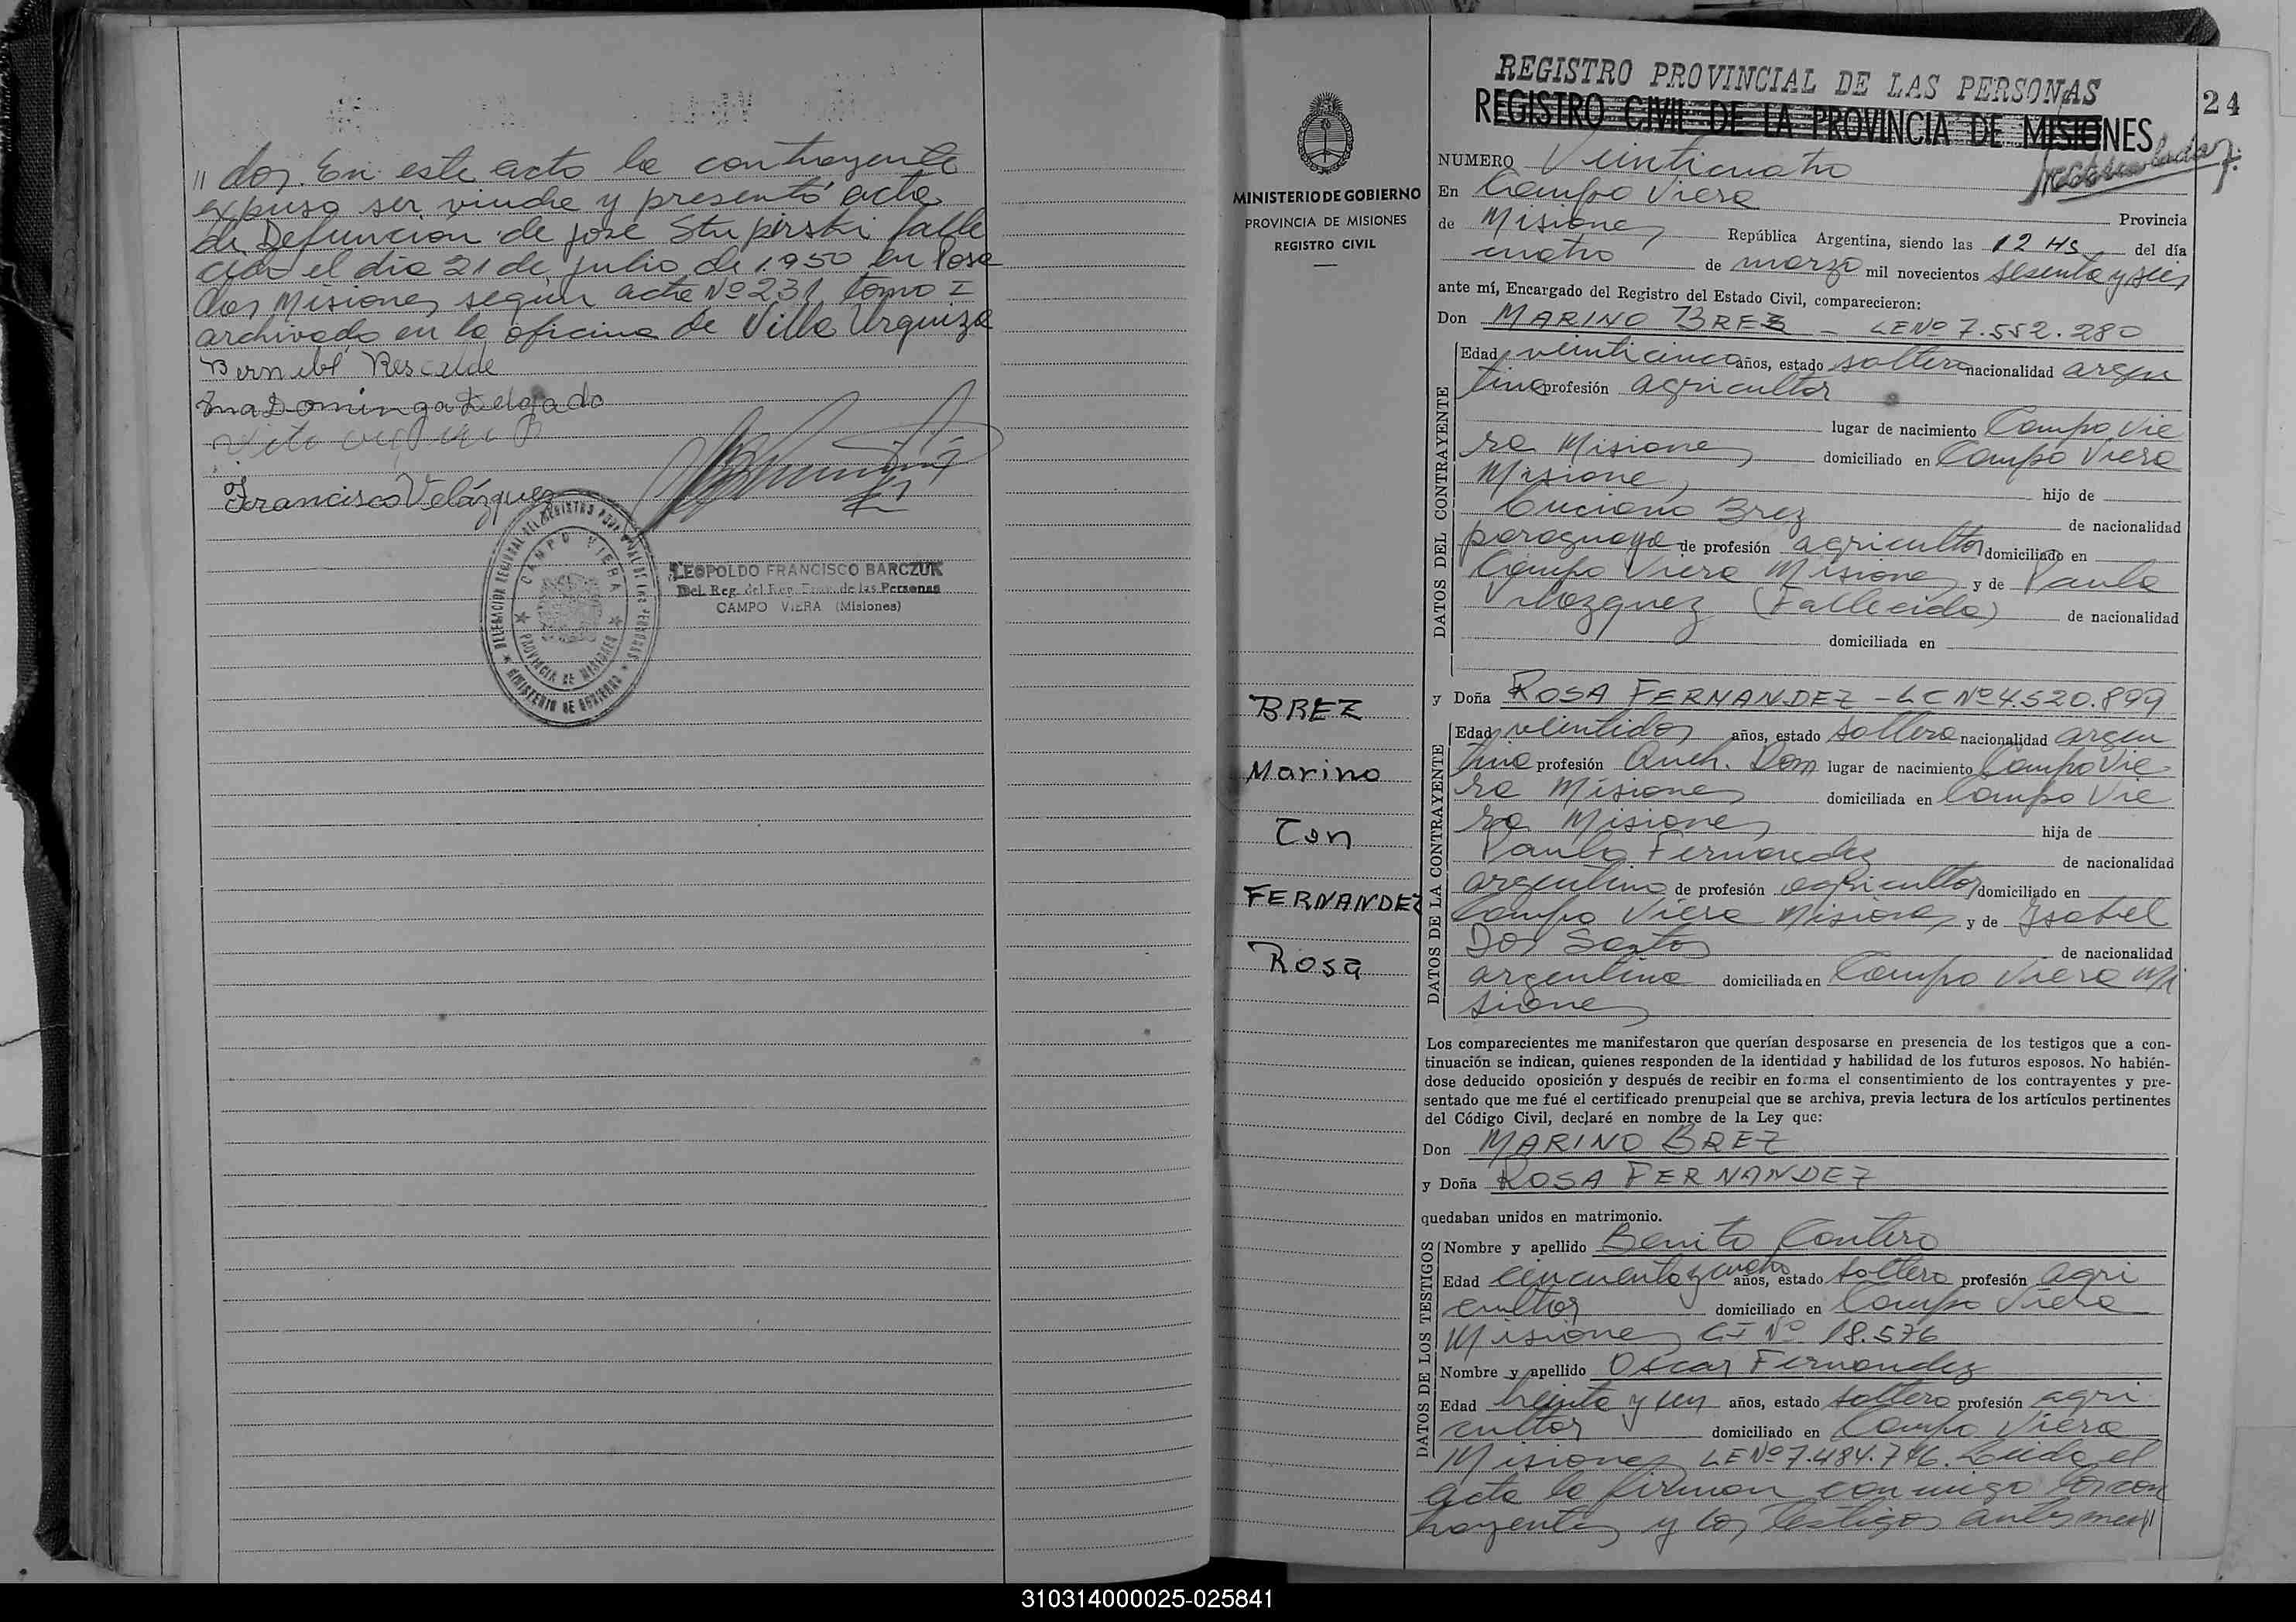 // dos. En este acto la contrayente
expuso ser viuda y presentó acta
de Defuncion de José Stupirski falle
cido el dia 21 de julio de 1.950 en Posa
das Misiones según acta Nº 231 tomo I
archivado en la oficina de Villa Urquiza
Bernabé Rescalde
Dominga Delgado
Francisco Velázquez
DELEGACION REGIONAL DEL REGISTRO PROVINCIAL DE LAS PERSONAS
CAMPO VIERA
PROVINCIA DE MISIONES
MINISTERIO DE GOBIERNO
LEOPOLDO FRANCISCO BARCZUK
Del. Reg. del Reg. Prov. de las Personas
CAMPO VIERA (Misiones)
MINISTERIO DE GOBIERNO
PROVINCIA DE MISIONES
REGISTRO CIVIL
BREZ
Marino
Con
FERNANDEZ
Rosa
REGISTRO PROVINCIAL DE LAS PERSONAS
REGISTRO CIVIL DE LA PROVINCIA DE MISIONES
24
NUMERO Veinticuatro
En Campo Viera
de Misiones Provincia
República Argentina, siendo las 12 Hs del día
cuatro de marzo mil novecientos sesenta y seis
ante mí, Encargado del Registro del Estado Civil, comparecieron:
Don MARINO BREZ - LE Nº 7.552.280
DATOS DEL CONTRAYENTE
Edad veinticinco años, estado soltero nacionalidad argen
tino profesión agricultor
lugar de nacimiento Campo Vie
ra Misiones domiciliado en Campo Viera
Misiones hijo de
Luciano Brez de nacionalidad
paraguaya de profesión agricultor domiciliado en
Campo Viera Misiones y de Paula
Vilazquez (Fallecida) de nacionalidad
domiciliada en
y Doña ROSA FERNANDEZ - LC Nº 4.520.899
DATOS DE LA CONTRAYENTE
Edad veintidos años, estado soltera nacionalidad argen
tina profesión Queh. Dom lugar de nacimiento Campo Vie
ra Misiones domiciliada en Campo Vie
ra Misiones hija de
Paulo Fernandez de nacionalidad
argentino de profesión agricultor domiciliado en
Campo Viera Misiones y de Isabel
Dos Santos de nacionalidad
argentina domiciliada en Campo Viera Mi
siones
Los comparecientes me manifestaron que querían desposarse en presencia de los testigos que a con-
tinuación se indican, quienes responden de la identidad y habilidad de los futuros esposos. No habién-
dose deducido oposición y después de recibir en forma el consentimiento de los contrayentes y pre-
sentado que me fué el certificado prenupcial que se archiva, previa lectura de los artículos pertinentes
del Código Civil, declaré en nombre de la Ley que:
Don MARINO BREZ
y Doña ROSA FERNANDEZ
quedaban unidos en matrimonio.
DATOS DE LOS TESTIGOS
Nombre y apellido Benito Contero
Edad cincuenta y cuatro años, estado soltero profesión agri
cultor domiciliado en Campo Viera
Misiones CI Nº 18.576
Nombre y apellido Oscar Fernandez
Edad treinta y un años, estado soltero profesión agri
cultor domiciliado en Campo Viera
Misiones LE Nº 7.484.746. Leida el
acta la firman conmigo los con
trayentes y los testigos antes men//
310314000025-025841